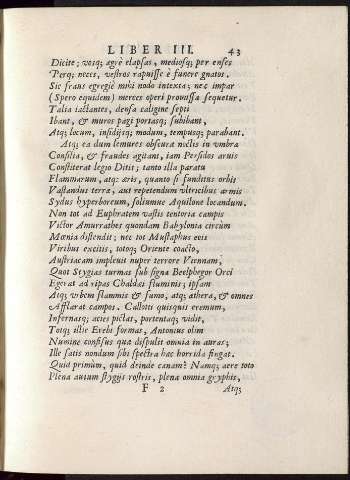 LIBER III. 43
Dicite; vosq; agrè elapsas, mediosq; per enses
Perq; neces, vestros rapuisse è funere gnatos.
Sic fraus egregiè mihi nodo intexta; nec impar
(Spero equidem) merces operi prouissa sequetur.
Talia iactantes, densa caligine septi
Ibant, & muros pagi portasq; subibant,
Atq; locum, insidijsq; modum, tempusq; parabant.
Atq; ea dum lemures obscura noctis in vmbra
Consilia, & fraudes agitant, iam Persidos aruis
Constiterat legio Ditis; tanto illa paratu
Flammarum, atq; aris, quanto si funditus orbis
Vastandus terræ, aut repetendum vltricibus armis
Sydus hyperboreum, soliumue Aquilone locandum.
Non tot ad Euphratem vastis tentoria campis
Victor Amurrathes quondam Babylonia circum
Mœnia distendit; nec tot Mustaphus eois
Viribus excitis, totoq; Oriente coacto,
Austriacam impleuit nuper terrore Viennam,
Quot Stygias turmas sub signa Beelphegor Orci
Egerat ad ripas Chaldæi fluminis; ipsam
Atq; vrbem flammis & fumo, atq; æthera, & omnes
Afflarat campos. Calloti quisquis eremum,
Infernasq; acies pictas, portentaq; vidit,
Totq; illic Erebi formas, Antonius olim
Numine confisus quæ dispulit omnia in auras;
Ille satis nondum sibi spectra hæc horrida fingat.
Quid primùm, quid deinde canam? Namq; aere toto
Plena auium stygijs rostris, plena omnia gryphis,
F 2 Atq;